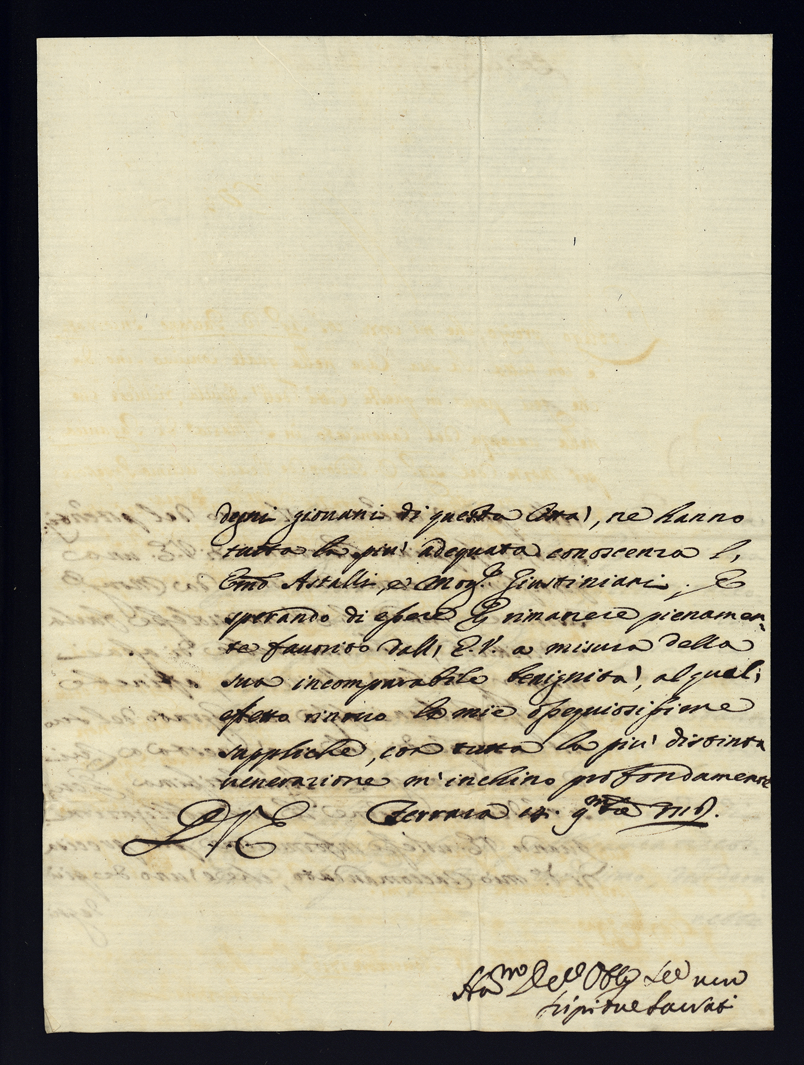 degni giovani di questa Città, ne hanno
tutta la più adequata conoscenza l',
Emo Astalli, e Mogr. Giustiniani, E
sperando di essere p rimanere pienamen-
te favorito dall' E.V. a misura della
sua incomparabile benignità, al qual'
effetto rinovo le mie ossequiosissime
suppliche, con tutta la più distinta
venerazione m'inchino profondamente
D V E Ferrara 14
Devo Obbo